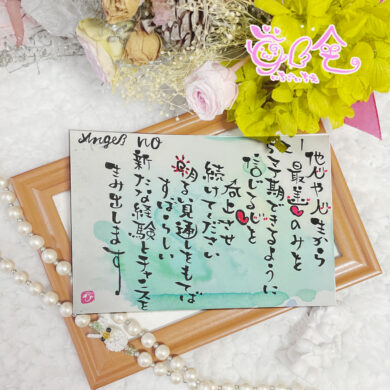 Angel NO
他人や人生から
最善のみを
予期できるように
信じる心を
向上させ
続けてください
明るい見通しをもてば
すばらしい
新たな経験とチャンスを
生み出します